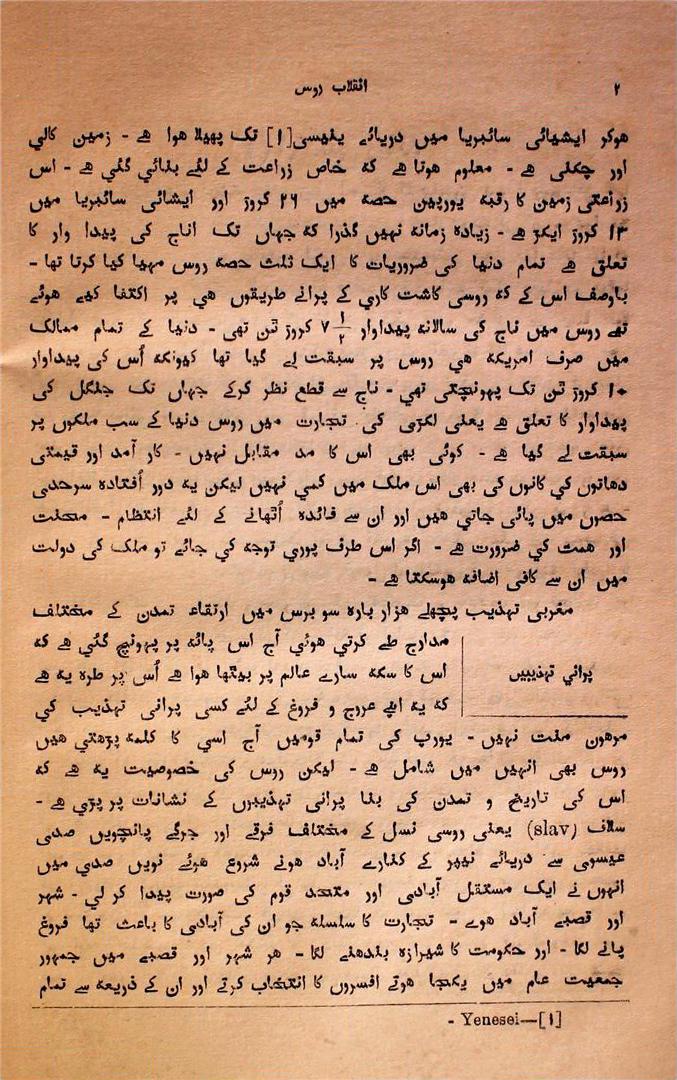 ۲ انقلاب روس
ھوکر ایشیائی سائبریا میں دریائے ینیسی[۱] تک پھیلا ھوا ھے - زمین کالی
اور چکنی ھے - معلوم ھوتا ھے کہ خاص زراعت کے لئے بنائی گئی ھے - اس
زراعتی زمین کا رقبہ یورپین حصہ میں ۲۶ کروڑ اور ایشائی سائبریا میں
۱۳ کروڑ ایکڑ ھے - زیادہ زمانہ نہیں گذرا کہ جہاں تک اناج کی پیدا وار کا
تعلق ھے تمام دنیا کی ضروریات کا ایک ثلث حصہ روس مہیا کیا کرتا تھا -
باوصف اس کے کہ روسی کاشت کاری کے پرانے طریقوں ھی پر اکتفا کیے ھوئے
تھے روس میں ناج کی سالانہ پیداوار ۷ ۱/۲ کروڑ ٹن تھی - دنیا کے تمام ممالک
میں صرف امریکہ ھی روس پر سبقت لے گیا تھا کیونکہ اُس کی پیداوار
۱۰ کروڑ ٹن تک پہونچتی تھی - ناج سے قطع نظر کرکے جہاں تک جنگل کی
پیداوار کا تعلق ھے یعنی لکڑی کی تجارت میں روس دنیا کے سب ملکوں پر
سبقت لے گیا ھے - کوئی بھی اس کا مد مقابل نہیں - کار آمد اور قیمتی
دھاتوں کی کانوں کی بھی اس ملک میں کمی نہیں لیکن یہ دور اُفتادہ سرحدی
حصوں میں پائی جاتی ھیں اور ان سے فائدہ اُٹھانے کے لئے انتظام - محنت
اور ھمت کی ضرورت ھے - اگر اس طرف پوری توجہ کی جائے تو ملک کی دولت
میں ان سے کافی اضافہ ھوسکتا ھے -
مغربی تہذیب پچھلے ھزار بارہ سو برس میں ارتقاء تمدن کے مختلف
مدارج طے کرتی ھوئی آج اس پائہ پر پہونچ گئی ھے کہ
پرانی تہذیبیں
اس کا سکہ سارے عالم پر بیٹھا ھوا ھے اُس پر طرہ یہ ھے
کہ یہ اپنے عروج و فروغ کے لئے کسی پرانی تہذیب کی
مرھون منت نہیں - یورپ کی تمام قومیں آج اسی کا کلمہ پڑھتی ھیں
روس بھی انہیں میں شامل ھے - لیکن روس کی خصوصیت یہ ھے کہ
اس کی تاریخ و تمدن کی بنا پرانی تہذیبوں کے نشانات پر پڑی ھے -
سلاف (slav) یعنی روسی نسل کے مختلف فرقے اور جرگے پانچویں صدی
عیسوی سے دریائے نیپر کے کنارے آباد ھونے شروع ھوئے نویں صدی میں
انہوں نے ایک مستقبل آبادی اور متحد قوم کی صورت پیدا کر لی - شہر
اور قصبے آباد ھوے - تجارت کا سلسلہ جو ان کی آبادی کا باعث تھا فروغ
پانے لگا - اور حکومت کا شیرازہ بندھنے لگا - ھر شہر اور قصبے میں جمہور
جمعیت عام میں یکجا ھوتے افسروں کا انتخاب کرتے اور ان کے ذریعہ سے تمام
[۱]—Yenesei -